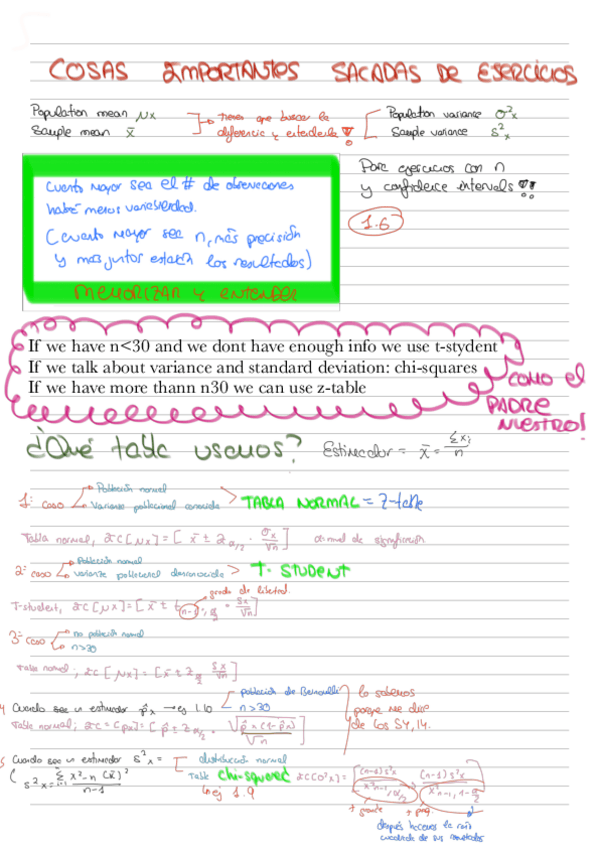 COSAS IMPORTANTES SACADAS DE EJERCICIOS
Population mean μx
Sample mean x̄
tienes que buscar la
diferencia y entenderla !
Population variance σ²x
Sample variance s²x
Cuanto mayor sea el # de observaciones
habrá menos variabilidad.
(cuanto mayor sea n, más precisión
y mas juntos estarán los resultados)
MEMORIZAR Y ENTENDER
Para ejercicios con n
y confidence intervals !!
1.6
If we have n<30 and we dont have enough info we use t-stydent
If we talk about variance and standard deviation: chi-squares
If we have more thann n30 we can use z-table
COMO EL
PADRE
NUESTRO!
¿Qué tabla usamos?
Estimador = x̄ = Σxi/n
1: caso
Población normal
Varianza poblacional conocida
TABLA NORMAL = Z-table
Tabla normal, IC[μx]=[x̄ ± Zα/2 · σx/√n]
α nivel de significación
2: caso
Población normal
varianza poblacional desconocida
T-STUDENT
grados de libertad
T-student, IC[μx]=[x̄ ± tn-1; α/2 · sx/√n]
3: caso
no población normal
n>30
Tabla normal; IC[μx]=[x̄ ± Zα/2 sx/√n]
4 Cuando sea un estimador p̂x → ej 1.10
población de Bernoulli
n>30
lo sabemos
porque me dice
de los SÍ, 14.
5 Cuando sea un estimador s²x =
distribución normal
Tabla chi-squared
ej 1.9
+ grande
+ peq.
después hacemos la raíz
cuadrada de sus resultados